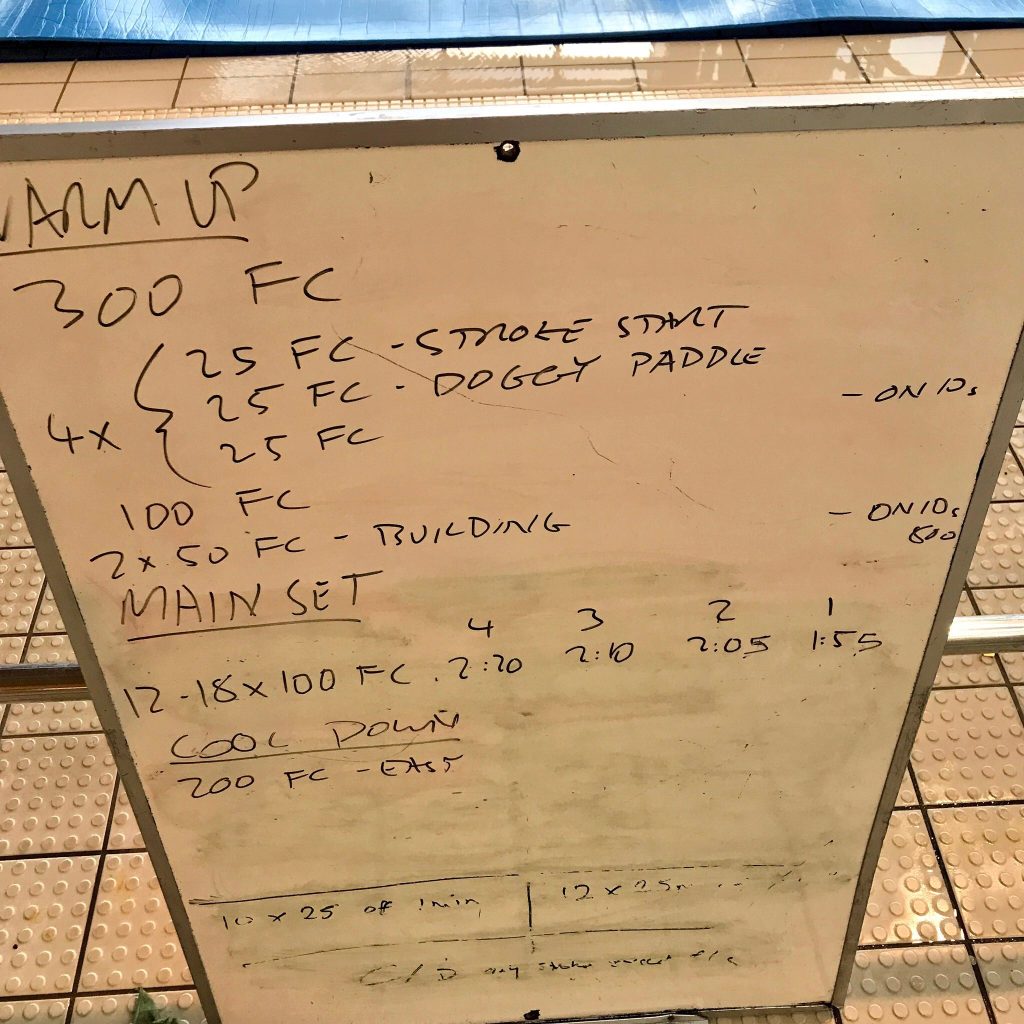 WARM UP
300 FC
4x { 25 FC - STROKE START
25 FC - DOGGY PADDLE - ON 10s
25 FC
100 FC
2 x 50 FC - BUILDING - ON 10s
800
MAIN SET
4 3 2 1
12-18 x 100 FC. 2:20 2:10 2:05 1:55
COOL DOWN
200 FC - EASY
10 x 25 of 1min 12 x 25m
C/D any